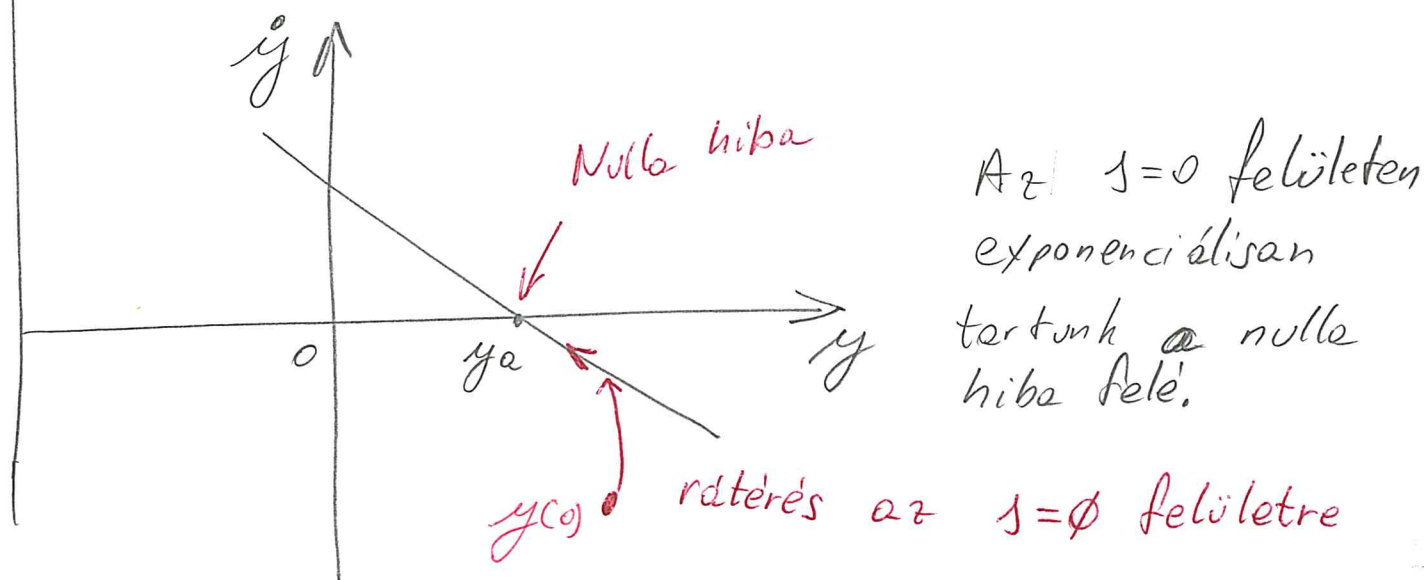 ẏ
Nulla hiba
Az s=0 felületen
exponenciálisan
tartunk a nulla
hiba felé.
0
ya
y
y(0)
rátérés az s=∅ felületre